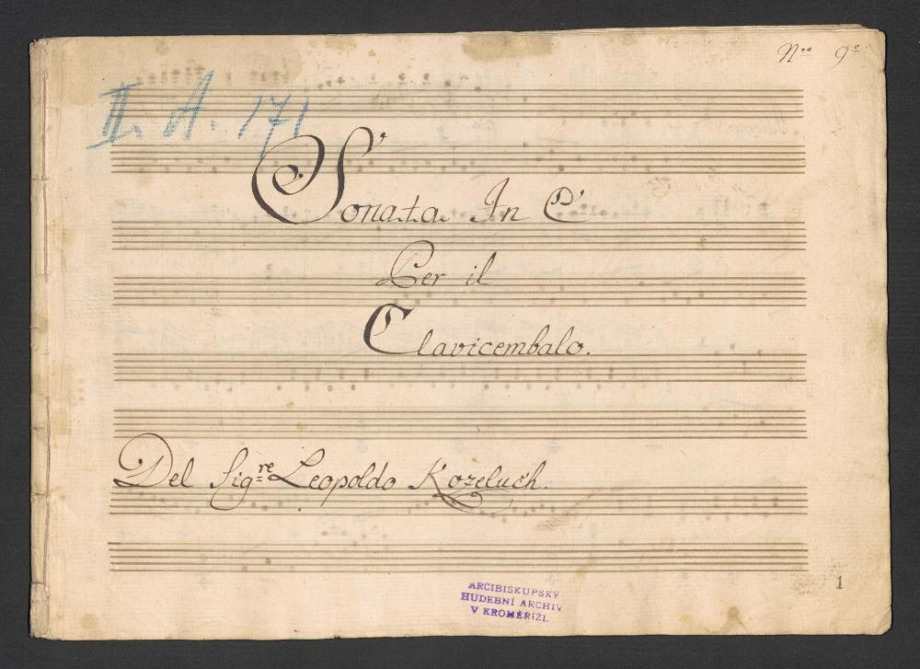 Nro 9o
II. A. 171
Sonata In C
Per il
Clavicembalo.
Del Sigre Leopoldo Kozeluch.
ARCIBISKUPSKÝ
HUDEBNÍ ARCHIV
V KROMĚŘÍŽI.
1